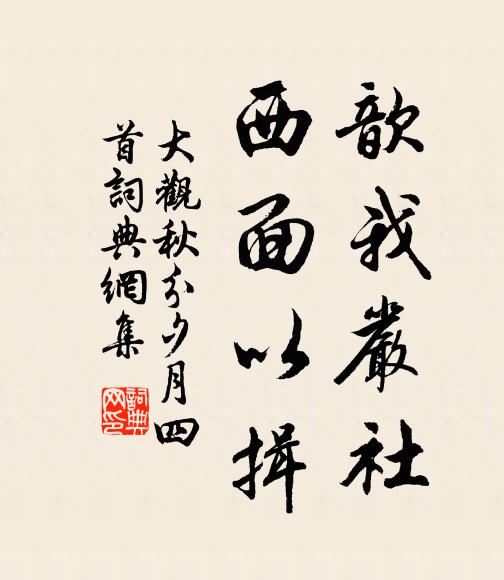 歆我嚴社
西面以揖
大觀秋分夕月四
首詞典網集
詞典
网印